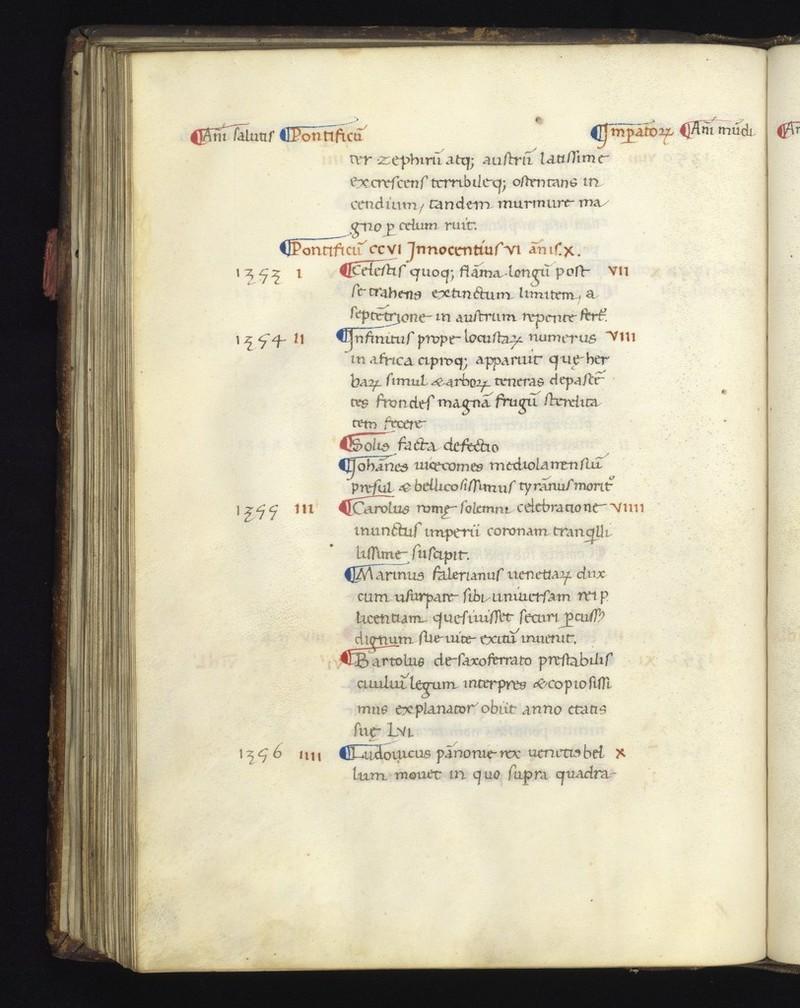 Ani̅ salutis Pontificu̅ Imꝑatoꝝ Ani̅ mu̅di
ter zephiru̅ atq; austru̅ latissime
excrescens terribileq; ostentans in
cendium / tandem murmure ma
gno ꝑ celum ruit.
Pontificu̅ ccvi Innocentius vi a̅nis. x.
1353 I Celestis quoq; fla̅ma longu̅ post VII
se trahens extinctum limitem, a
septe̅trione in austrum repente fert᷑.
1354 II Infinitus prope locustaꝝ numerus VIII
in africa ciproq; apparuit quę her
baꝝ simul & arboꝝ teneras depaste̅
tes frondes magna̅ frugu̅ sterelita
tem fecere
Solis facta defectio
Joha̅nes uicecomes mediolanensiu̅
presul & bellicosissimus tyra̅nus morit᷑
1355 III Carolus romę solemni celebratione VIIII
inunctus imperii coronam tranqͥlli
lissime suscipit.
Marinus falerianus uenetiaꝝ dux
cum usurpare sibi uniuersam rei p
licentiam quesiuisset securi ꝑcuss9
dignum sue uite exitu̅ inuenit.
Bartolus de saxoferrato prestabilis
ciuiliu̅ legum interpres & copiosissi
mus explanator obiit anno etatis
suę LVI
1356 IIII Ludouicus pa̅nonie rex uenetis bel X
lum mouet in quo supra quadra-